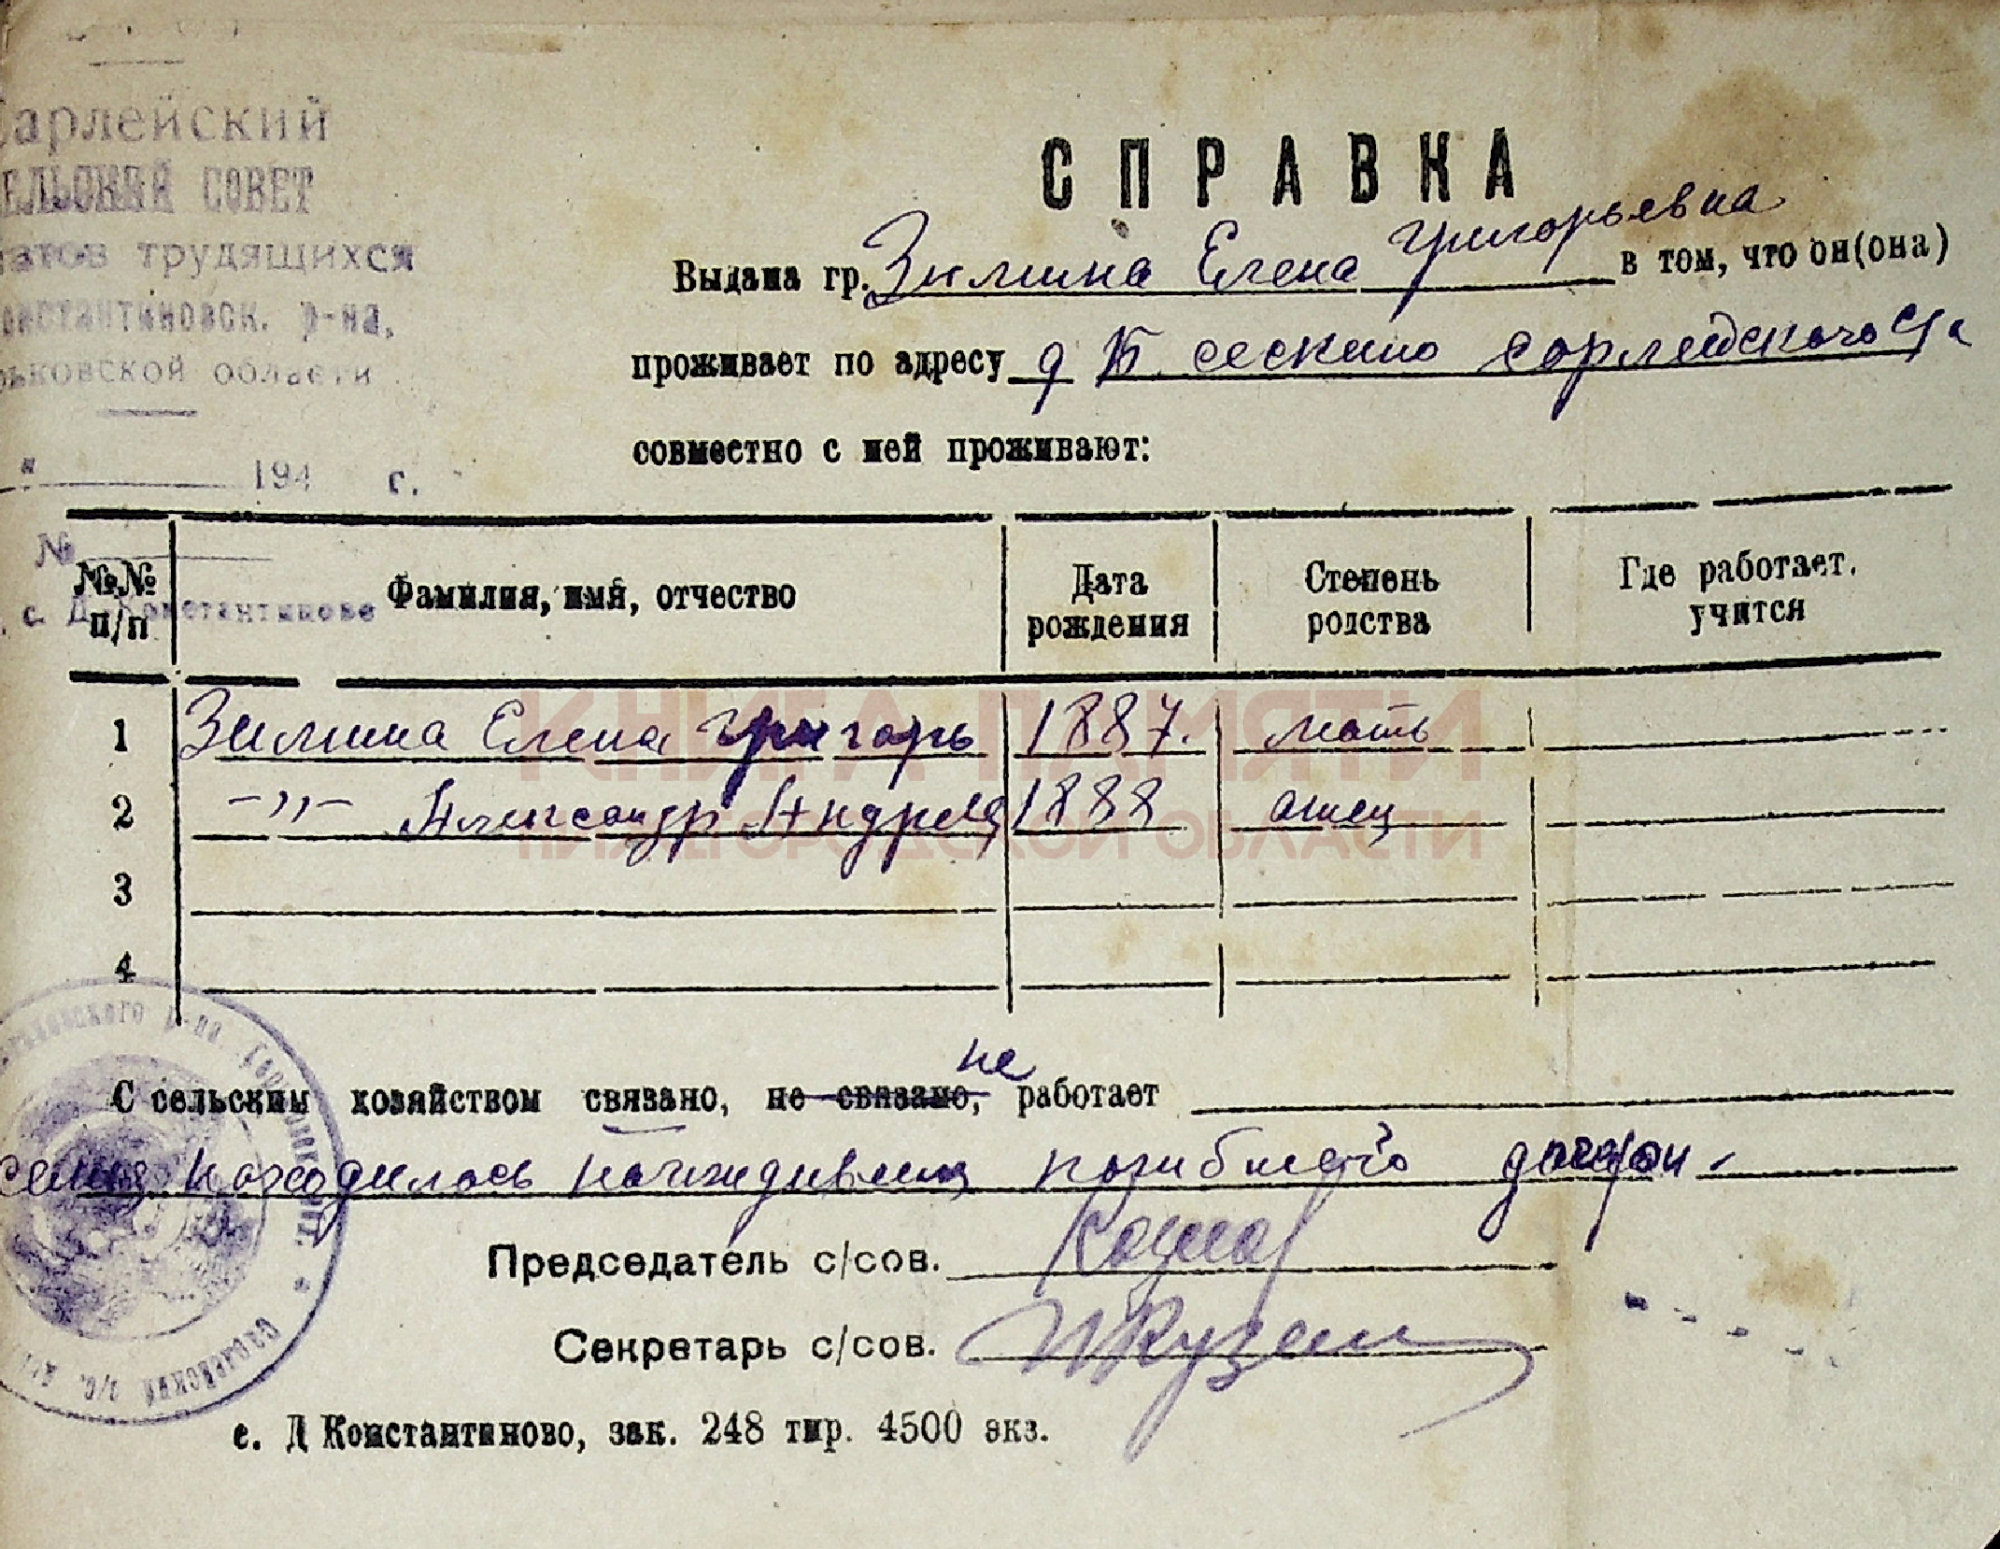 арлейский
ЕЛЬСКИЙ СОВЕТ
атов трудящихся
онстантиновск. р-на,
рьковской области
" 194 г.
№
с. Д-Константинове
СПРАВКА
Выдана гр. Зимина Елена Григорьевна в том, что он(она)
проживает по адресу д Б. сескино сорлейского с/с
совместно с ней проживают:
№№ п/п Фамилия, имя, отчество Дата рождения Степень родства Где работает. учится
1 Зимина Елена Григорь 1887. мать
2 -"- Александр Андреев 1888 отец
3
4
С сельским хозяйством связано, не связано, не работает
семья находилась наиждивении погибшего
Председатель с/сов.
Секретарь с/сов.
с. Д Константиново, зак. 248 тир. 4500 экз.
КНИГА ПАМЯТИ
НИЖЕГОРОДСКОЙ ОБЛАСТИ